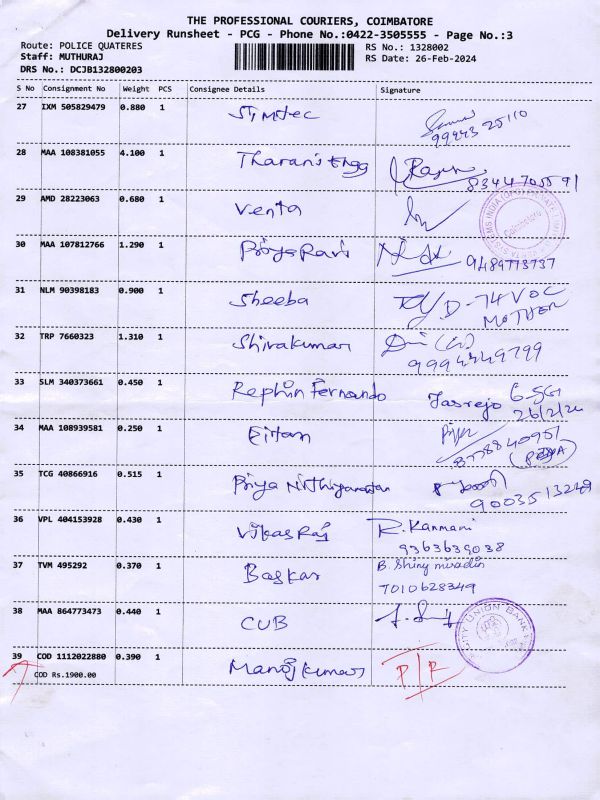 THE PROFESSIONAL COURIERS, COIMBATORE
Delivery Runsheet - PCG - Phone No.:0422-3505555 - Page No.:3
Route: POLICE QUATERES
RS No.: 1328002
Staff: MUTHURAJ
RS Date: 26-Feb-2024
DRS No.: DCJB132800203
S No Consignment No Weight PCS Consignee Details Signature
27 IXM 505829479 0.880 1
99943 25110
28 MAA 108381055 4.100 1 Tharani Engg
8344705591
29 AMD 28223063 0.680 1 Venta
30 MAA 107812766 1.290 1 Priya Ravi
9489773737
31 NLM 90398183 0.900 1 Sheeba
D-74 VOC
MOTHER
32 TRP 7660323 1.310 1 Shivakumar
9994449799
33 SLM 340373661 0.450 1 Rephin Fernando
26/2/24
34 MAA 108939581 0.250 1
8778840951
35 TCG 40866916 0.515 1 Priya
9003513249
36 VPL 404153928 0.430 1 Vikas Raj R. Kanmani
9363639038
37 TVM 495292 0.370 1 Baskar B. Shiny
7010628349
38 MAA 864773473 0.440 1 CUB
CITY UNION BANK
39 COD 1112022880 0.390 1 Manoj kumar
COD Rs.1900.00